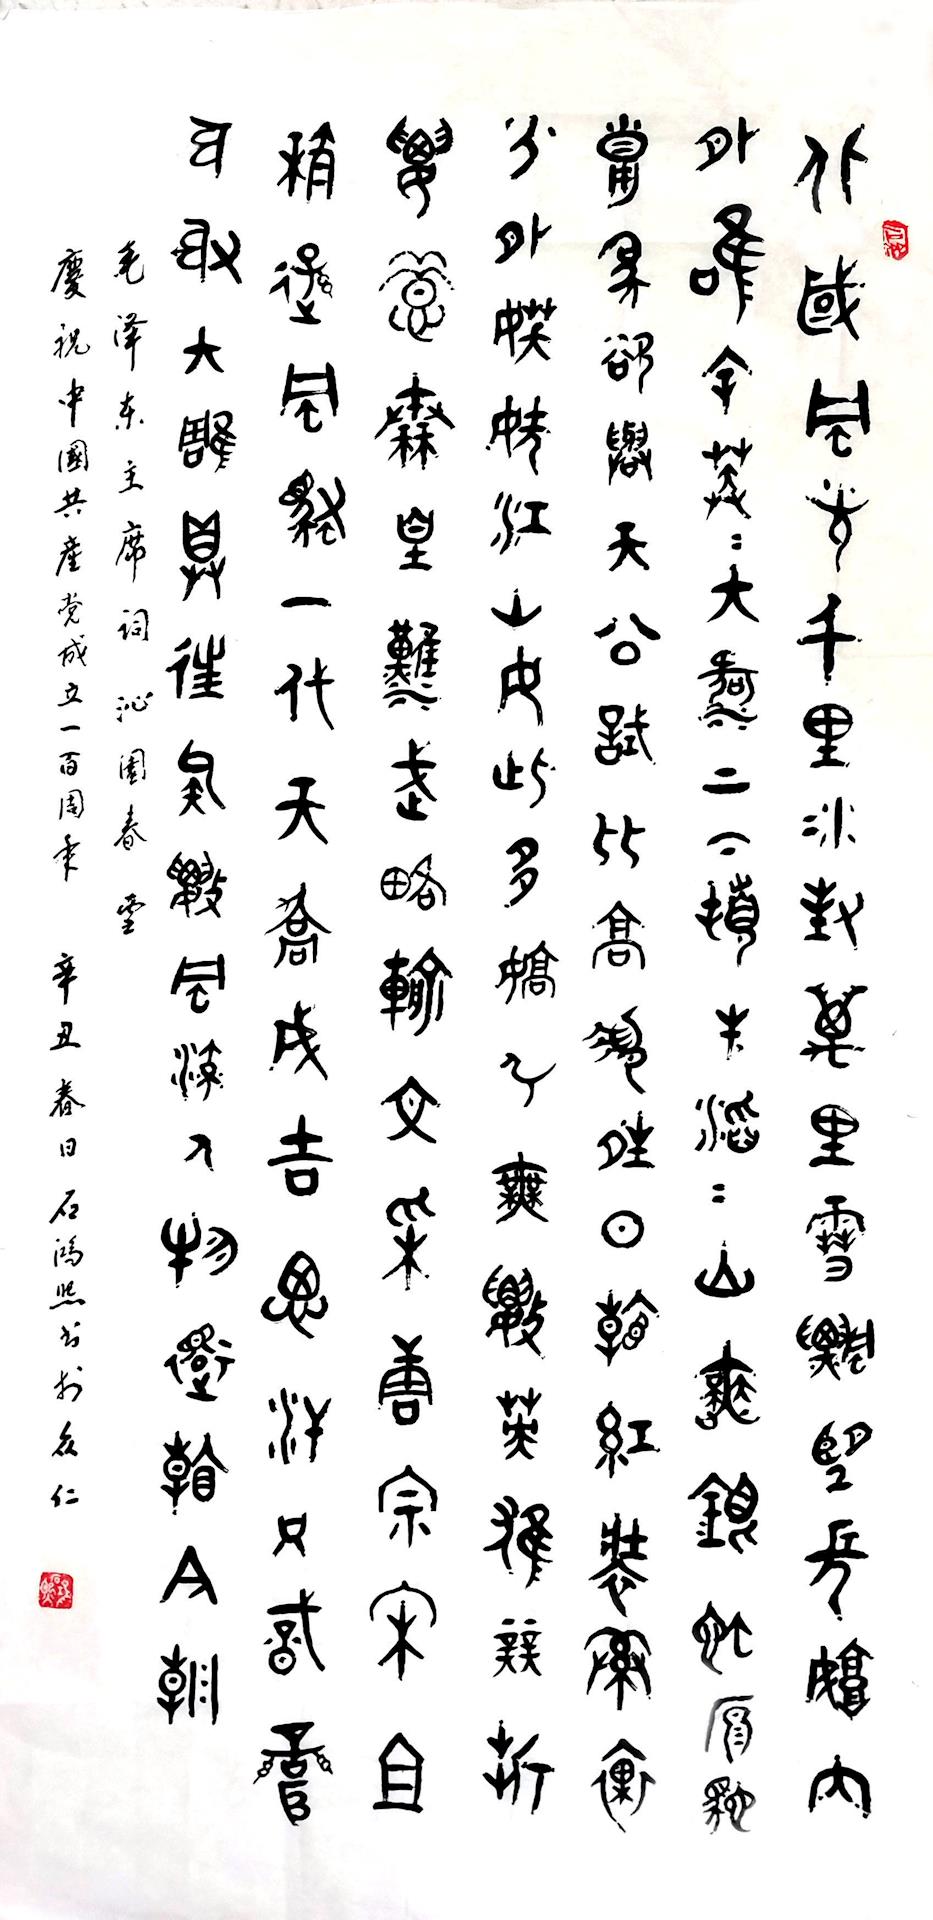 北國風光千里冰封萬里雪飄望長城內
外唯余莽=大河上下頓失滔=山舞銀蛇原馳
蠟象欲與天公試比高須晴日看紅裝素裹
分外妖嬈江山如此多嬌引無數英雄競折
腰惜秦皇漢武略輸文采唐宗宋祖
稍遜風騷一代天驕成吉思汗只識彎
弓射大雕俱往矣數風流人物還看今朝
毛泽东主席词沁園春雪
慶祝中國共產党成立一百周年 辛丑春日石鴻熙书於众仁